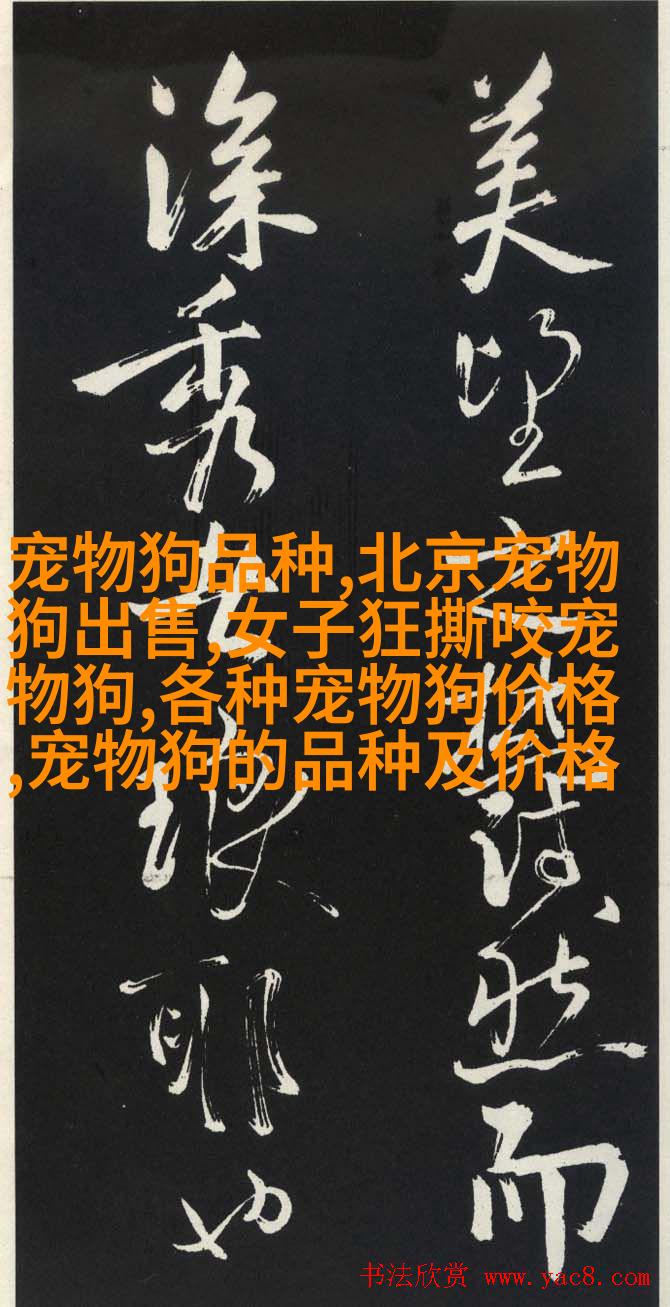 美望之蔚然而
深秀者琅耶也
宠物狗品种,北京宠物
狗出售,女子狂撕咬宠
物狗,各种宠物狗价格
,宠物狗的品种及价格
书法欣赏 www.yac8.com